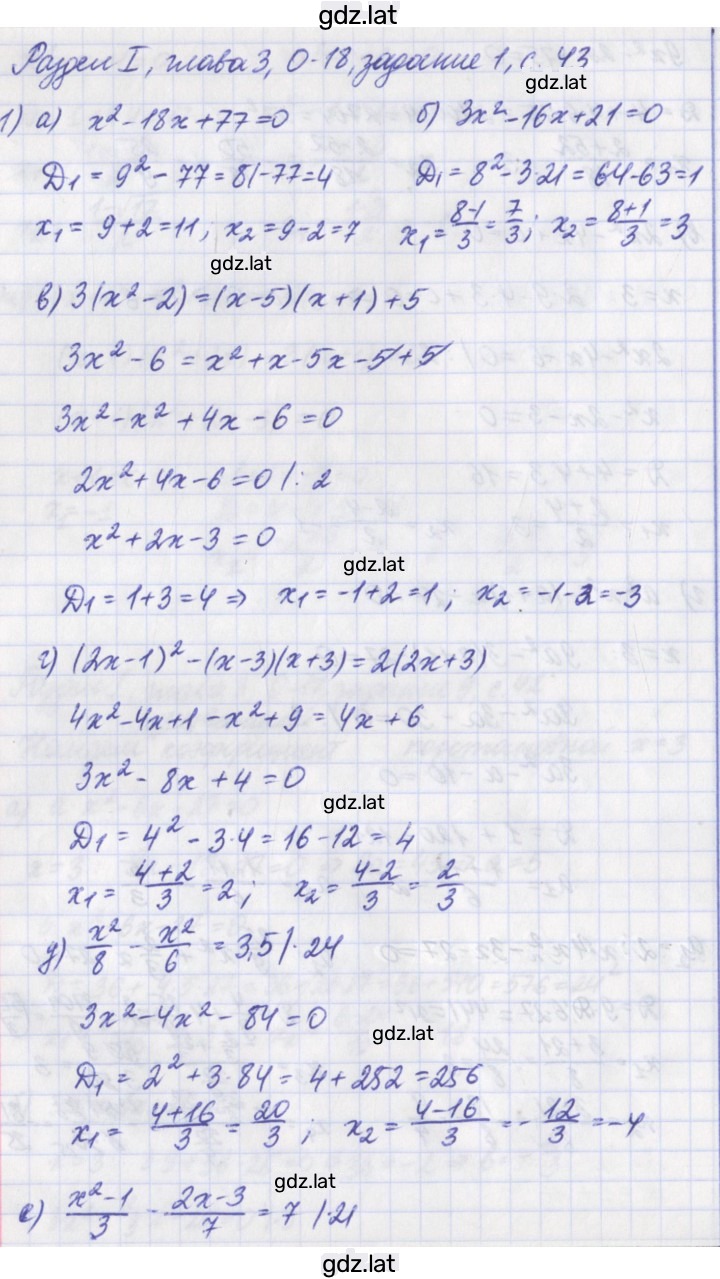 gdz.lat
Раздел I, глава 3, О-18, задание 1, с. 43
gdz.lat
1) а) x² - 18x + 77 = 0 б) 3x² - 16x + 21 = 0
D₁ = 9² - 77 = 81 - 77 = 4 D₁ = 8² - 3·21 = 64 - 63 = 1
x₁ = 9 + 2 = 11; x₂ = 9 - 2 = 7 x₁ = (8-1)/3 = 7/3; x₂ = (8+1)/3 = 3
gdz.lat
в) 3(x² - 2) = (x - 5)(x + 1) + 5
3x² - 6 = x² + x - 5x - 5 + 5
3x² - x² + 4x - 6 = 0
2x² + 4x - 6 = 0 /: 2
x² + 2x - 3 = 0
gdz.lat
D₁ = 1 + 3 = 4 ⇒ x₁ = -1 + 2 = 1; x₂ = -1 - 2 = -3
г) (2x - 1)² - (x - 3)(x + 3) = 2(2x + 3)
4x² - 4x + 1 - x² + 9 = 4x + 6
3x² - 8x + 4 = 0
gdz.lat
D₁ = 4² - 3·4 = 16 - 12 = 4
x₁ = (4+2)/3 = 2; x₂ = (4-2)/3 = 2/3
д) x²/8 - x²/6 = 3,5 /·24
3x² - 4x² - 84 = 0
gdz.lat
D₁ = 2² + 3·84 = 4 + 252 = 256
x₁ = (4+16)/3 = 20/3; x₂ = (4-16)/3 = -12/3 = -4
gdz.lat
е) (x²-1)/3 - (2x-3)/7 = 7 /·21
gdz.lat